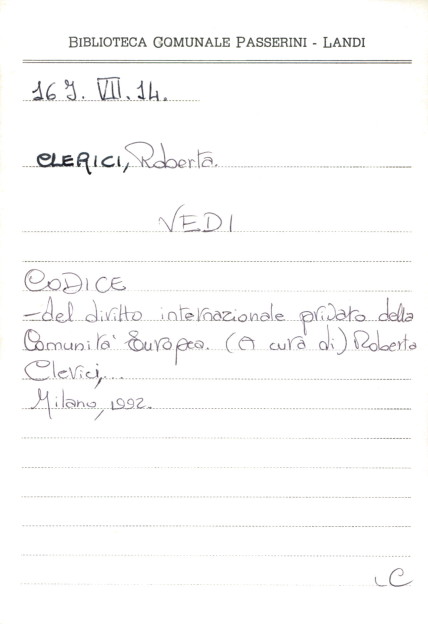 BIBLIOTECA COMUNALE PASSERINI - LANDI
16 J. VII. 14.
CLERICI, Roberta.
VEDI
CODICE
-del diritto internazionale privato della
Comunità Europea. (A cura di) Roberta
Clerici,...
Milano, 1992.
LC